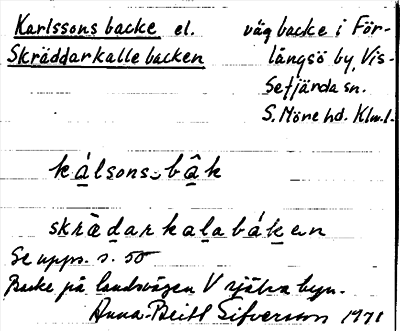 Karlssons backe el. vägbacke i För-
Skräddarkallebacken långsö by, Vis-
sefjärda sn.
S. Möre hd. Klm.l.
kálsons-bâk
skrädarkalabáken
Se upps. s. 50
Backe på landsvägen V själva byn.
Anna-Britt Sifverson 1971